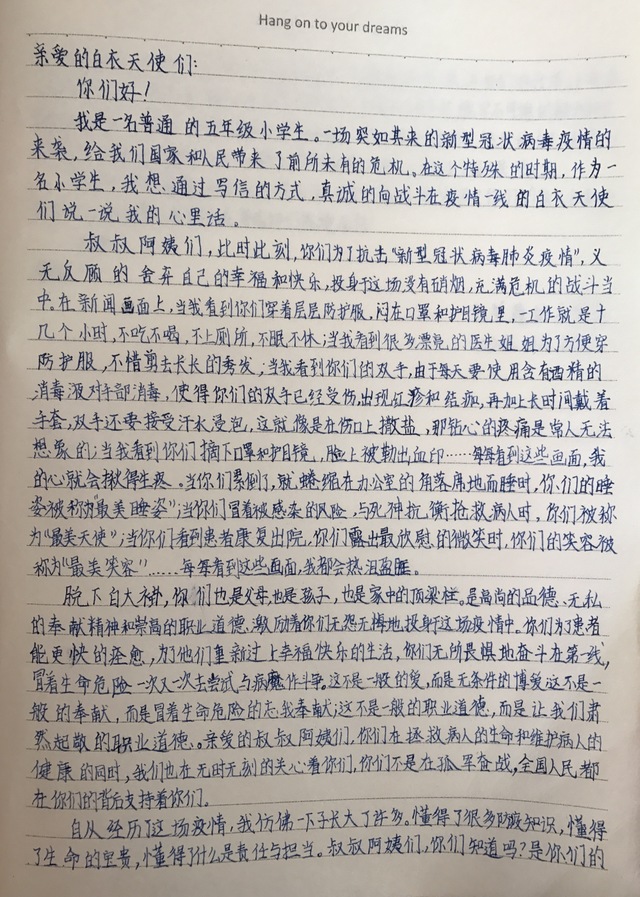 Hang on to your dreams
亲爱的白衣天使们:
你们好!
我是一名普通的五年级小学生。一场突如其来的新型冠状病毒疫情的
来袭,给我们国家和人民带来了前所未有的危机。在这个特殊的时期,作为一
名小学生,我想通过写信的方式,真诚的向战斗在疫情一线的白衣天使
们说一说我的心里话。
叔叔阿姨们,此时此刻,你们为了抗击“新型冠状病毒肺炎疫情”,义
无反顾的舍弃自己的幸福和快乐,投身于这场没有硝烟,充满危机的战斗当
中。在新闻画面上,当我看到你们穿着层层防护服,闷在口罩和护目镜里,一工作就是十
几个小时,不吃不喝,不上厕所,不眠不休;当我看到很多漂亮的医生姐姐为了方便穿
防护服,不惜剪去长长的秀发;当我看到你们的双手,由于每天要使用含有酒精的
消毒液对手部消毒,使得你们的双手已经受伤,出现红疹和结痂,再加上长时间戴着
手套,双手还要接受汗水浸泡,这就像是在伤口上撒盐,那钻心的疼痛是常人无法
想象的;当我看到你们摘下口罩和护目镜,脸上被勒出血印……每每看到这些画面,我
的心就会揪得生疼。当你们累倒了,就蜷缩在办公室的角落席地而睡时,你们的睡
姿被称为“最美睡姿”;当你们冒着被感染的风险,与死神抗衡抢救病人时,你们被称
为“最美天使”;当你们看到患者康复出院,你们露出最欣慰的微笑时,你们的笑容被
称为“最美笑容”……每每看到这些画面,我都会热泪盈眶。
脱下白大褂,你们也是父母,也是孩子,也是家中的顶梁柱。是高尚的品德、无私
的奉献精神和崇高的职业道德,激励着你们无怨无悔地投身于这场疫情中。你们为了患者
能更快的痊愈,为了他们重新过上幸福快乐的生活,你们无所畏惧地奋斗在第一线,
冒着生命危险一次又一次去尝试与病魔作斗争。这不是一般的爱,而是无条件的博爱;这不是一
般的奉献,而是冒着生命危险的忘我奉献;这不是一般的职业道德,而是让我们肃
然起敬的职业道德。亲爱的叔叔阿姨们,你们在拯救病人的生命和维护病人的
健康的同时,我们也在无时无刻的关心着你们,你们不是在孤军奋战,全国人民都
在你们的背后支持着你们。
自从经历了这场疫情,我仿佛一下子长大了许多。懂得了很多防疫知识,懂得
了生命的宝贵,懂得了什么是责任与担当。叔叔阿姨们,你们知道吗?是你们的